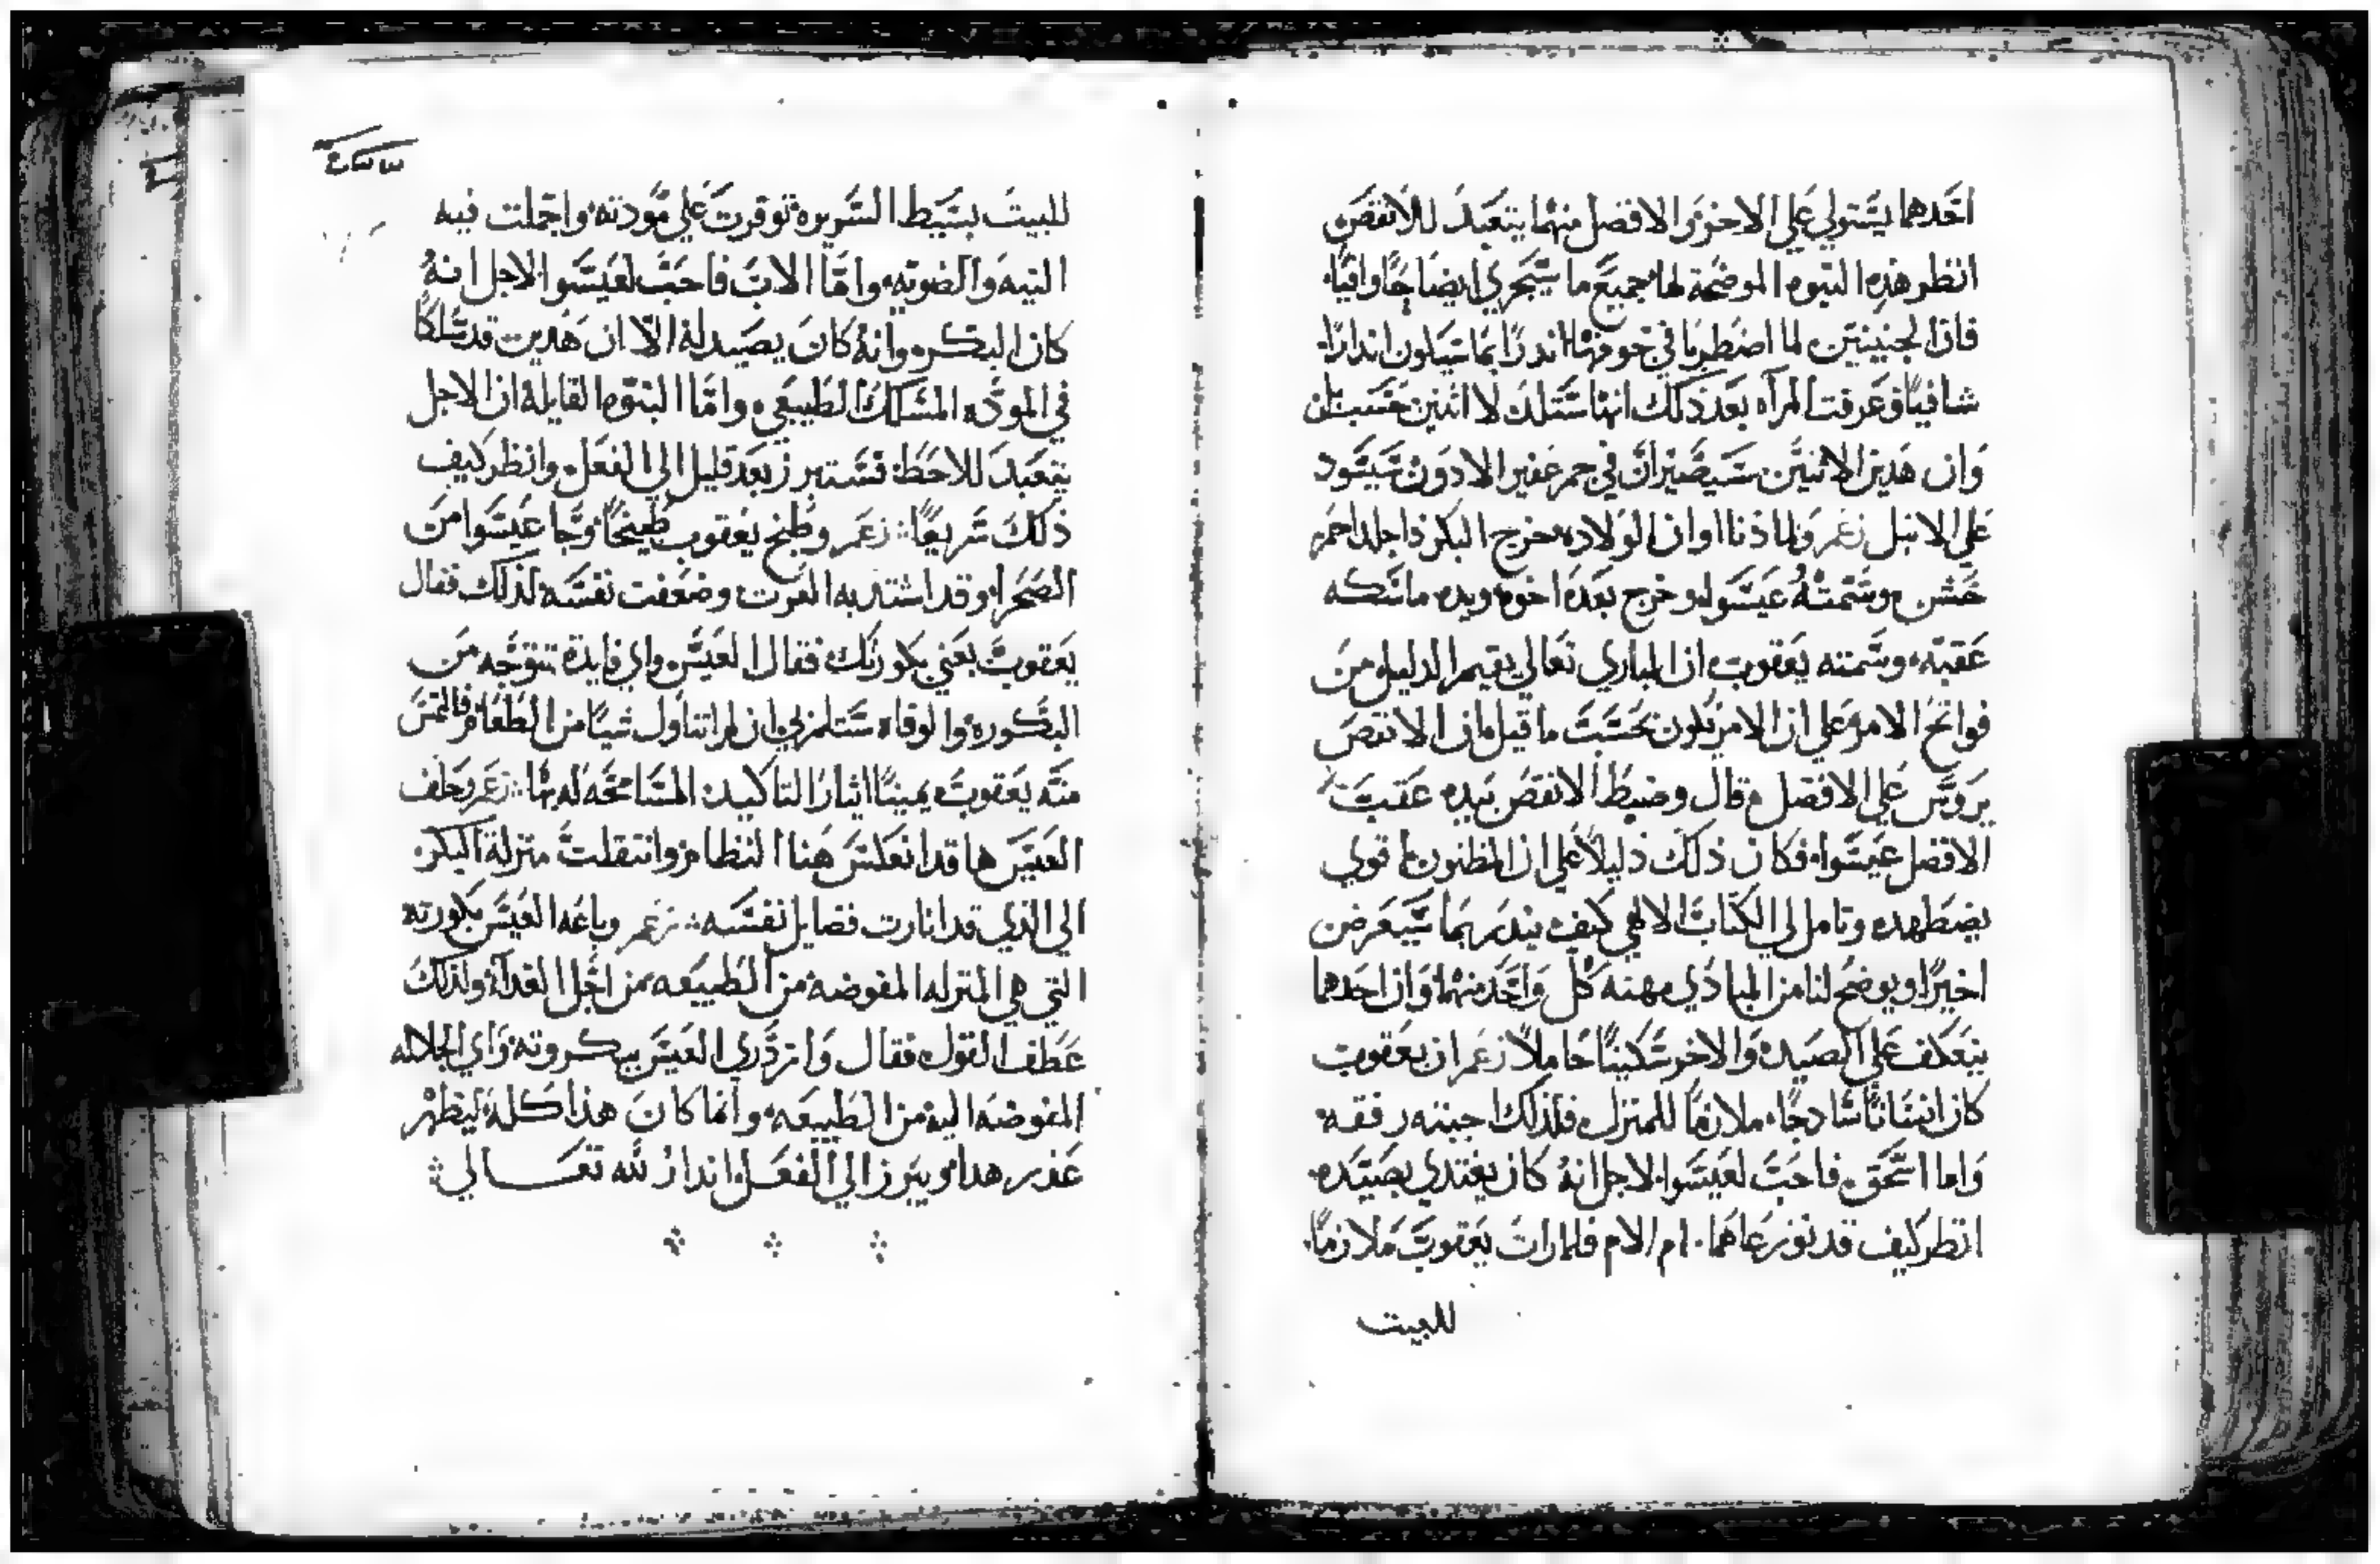 احدهما يستولي علي الاخر والافضل منهما يتعبد للانقص
انظر هذه النبوه الموضحة لها جميع ما سيجري ايضاحًا وافيًا
فان الجنينين لما اضطربا في جوفها اندرا بما سيكون اندارًا
شافيًا وعرفت المرآه بعد ذلك انها ستلد لا اثنين حسب بل
وان هدين الاثنين سيصيران في جم غفير الادون سيسود
علي الانبل زعم ولما دنا اوان الولاده خرج البكر فاجلدا احمر
خشن وسمته عيسوا وخرج بعده اخوه ويده ماسكه
عقبه وسمته يعقوب ان الباري تعالي يقيم الدليل من
فواتح الامر علي ان الامر يكون بحسب ما قيل بان الانقص
يروس علي الافضل قال وضبط الانقص بيده عقب
الافضل عيسوا فكان ذلك دليلاً علي ان المظنون قوي
يضطهده وتامل لي الكتاب الالهي كيف يندر بما سيعرض
اخيرًا ويوضح لنا من المبادي مهنه كل واحد منهما وان احدهما
يتعكف علي الصيد والاخر سكينًا حاملاً زعم ان يعقوب
كان انسانًا سادجًا ملازمًا للمنزل فلذلك اجبته رفقه
واما اسحق فاحب لعيسوا لاجل انه كان يغتدي بصيده
انظر كيف قد توزعاهما ام الام فلما رات يعقوب ملازمًا
للبيت
للبيت بسيط السريره توفرت علي مودته واجملت فيه
النيه والضويه واما الاب فاحب لعيسوا لاجل انه
كان البكر وانه كان يصيد له الا ان هدين قد سلكا
في الموده المسلك الطبيعي واما النبوه القايله ان الاجل
يتعبد للاحط فستبرز بعد قليل الي الفعل وانظر كيف
ذلك سريعًا زعم وطبخ يعقوب طبيخًا وجا عيسوا من
الصحرا وقد اشتد به الغرت وضعفت نفسه لذلك فقال
يعقوب بعني بكورتك فقال العيس واي فايدة تتوجه من
البكوره والوفاه ستلم بي ان لم اتناول شيًا من الطعام فالتمس
منه يعقوب يمينًا ايثارًا لتاكيد المسامحه له بها زعم وحلف
العيس ها قد انعكس هنا النظام وانتقلت منزلة البكر
الي الذي قد انارت فضايل نفسه زعم وباعه العيس بكورته
التي هي المنزله المفوضه من الطبيعه من اجل الغدآ ولذلك
عطف القول فقال وازدري العيس ببكروته واي الجلاله
المفوضه اليه من الطبيعه وانما كان هذا كله ليظهر
عذر هدا ويبرز الي الفعل اندار لله تعالي